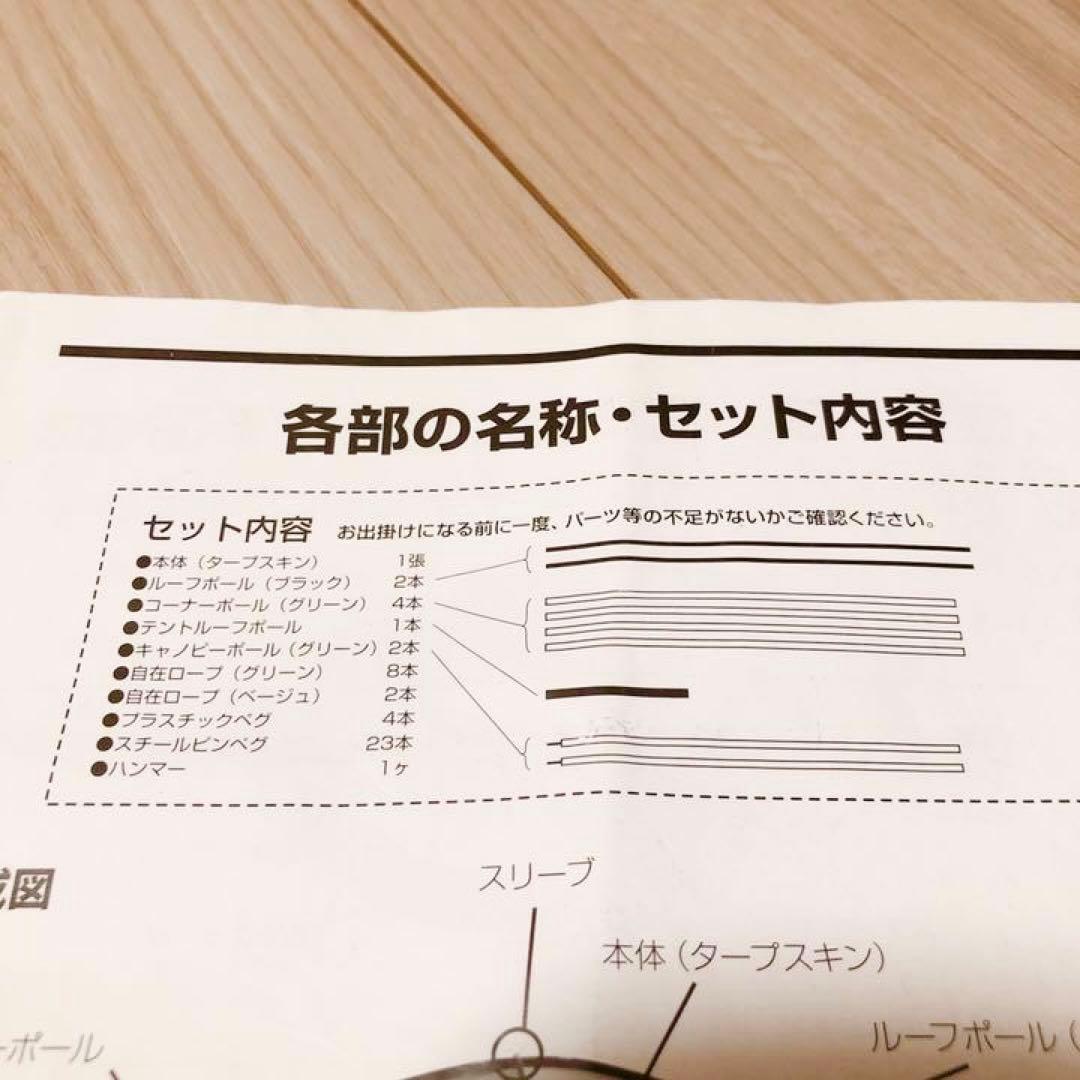 各部の名称・セット内容
セット内容 お出掛けになる前に一度、パーツ等の不足がないかご確認ください。
●本体（タープスキン） 1張
●ルーフポール（ブラック） 2本
●コーナーポール（グリーン） 4本
●テントルーフポール 1本
●キャノピーポール（グリーン） 2本
●自在ロープ（グリーン） 8本
●自在ロープ（ベージュ） 2本
●プラスチックペグ 4本
●スチールピンペグ 23本
●ハンマー 1ヶ
図
スリーブ
本体（タープスキン）
ルーフポール（
ーポール